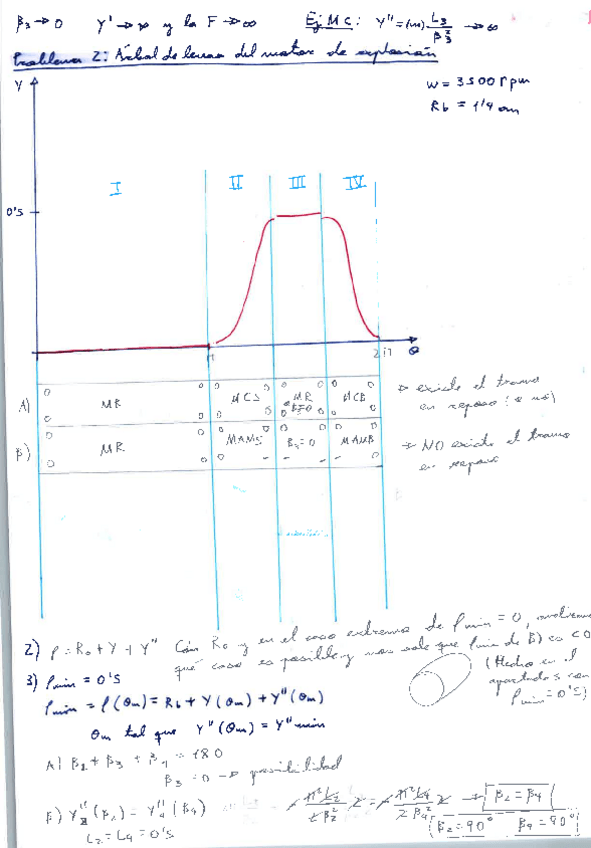 β₃→0 Y'→∞ y la F→∞ Ej MC: Y''=(..) L₃/β₃² →∞
Problema 2: Árbol de levas del motor de explosión
Y
w = 3500 rpm
Rb = 1'4 cm
I II III IV
0'5
π 2π θ
A) 0 0 MR 0 0 0 0 MCS 0 0 0 0 MR β=0 0 0 0 0 MCB 0 0
→ existe el tramo
en reposo (o no)
B) 0 0 MR 0 0 0 0 MAMS 0 - 0 0 β₃=0 - - 0 0 MAMB - 0
→ NO existe el tramo
en reposo
2) ρ = R₀ + Y + Y'' Con R₀ y en el caso extremo de ρmin = 0,
qué caso es posible y nos sale que ρmin de B) es <0
(Hecho en el
apartado 3 con
ρmin = 0'5)
3) ρmin = 0'5
ρmin = ρ(θm) = Rb + Y(θm) + Y''(θm)
θm tal que Y''(θm) = Y''min
A) β₂ + β₃ + β₄ = 180
β₃ = 0 → posibilidad
B) Y₂''(β₂) = Y₄''(β₄) -π²L₂/2β₂² = -π²L₄/2β₄² → β₂ = β₄
L₂ = L₄ = 0'5 β₂ = 90° β₄ = 90°